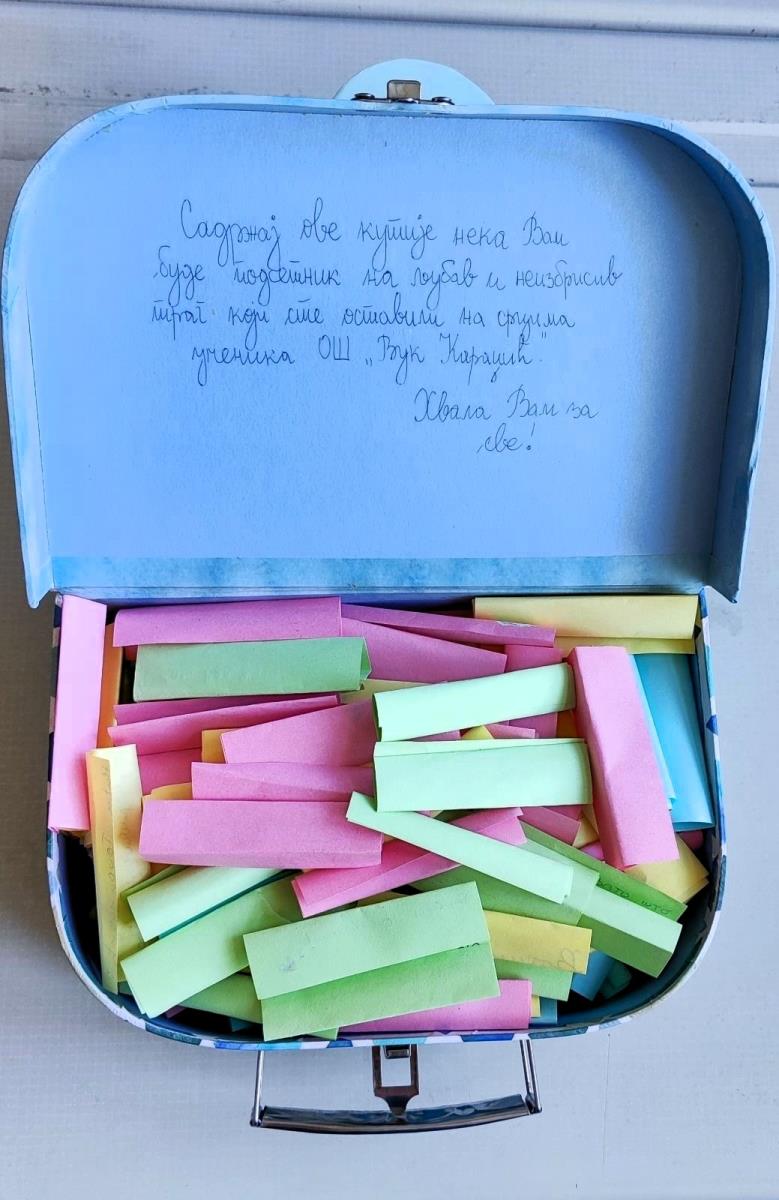 Садржај ове кутије нека Вам
буде подсетник на љубав и неизбрисив
траг који сте оставили на срцима
ученика ОШ „Вук Караџић"
Хвала Вам за
све!